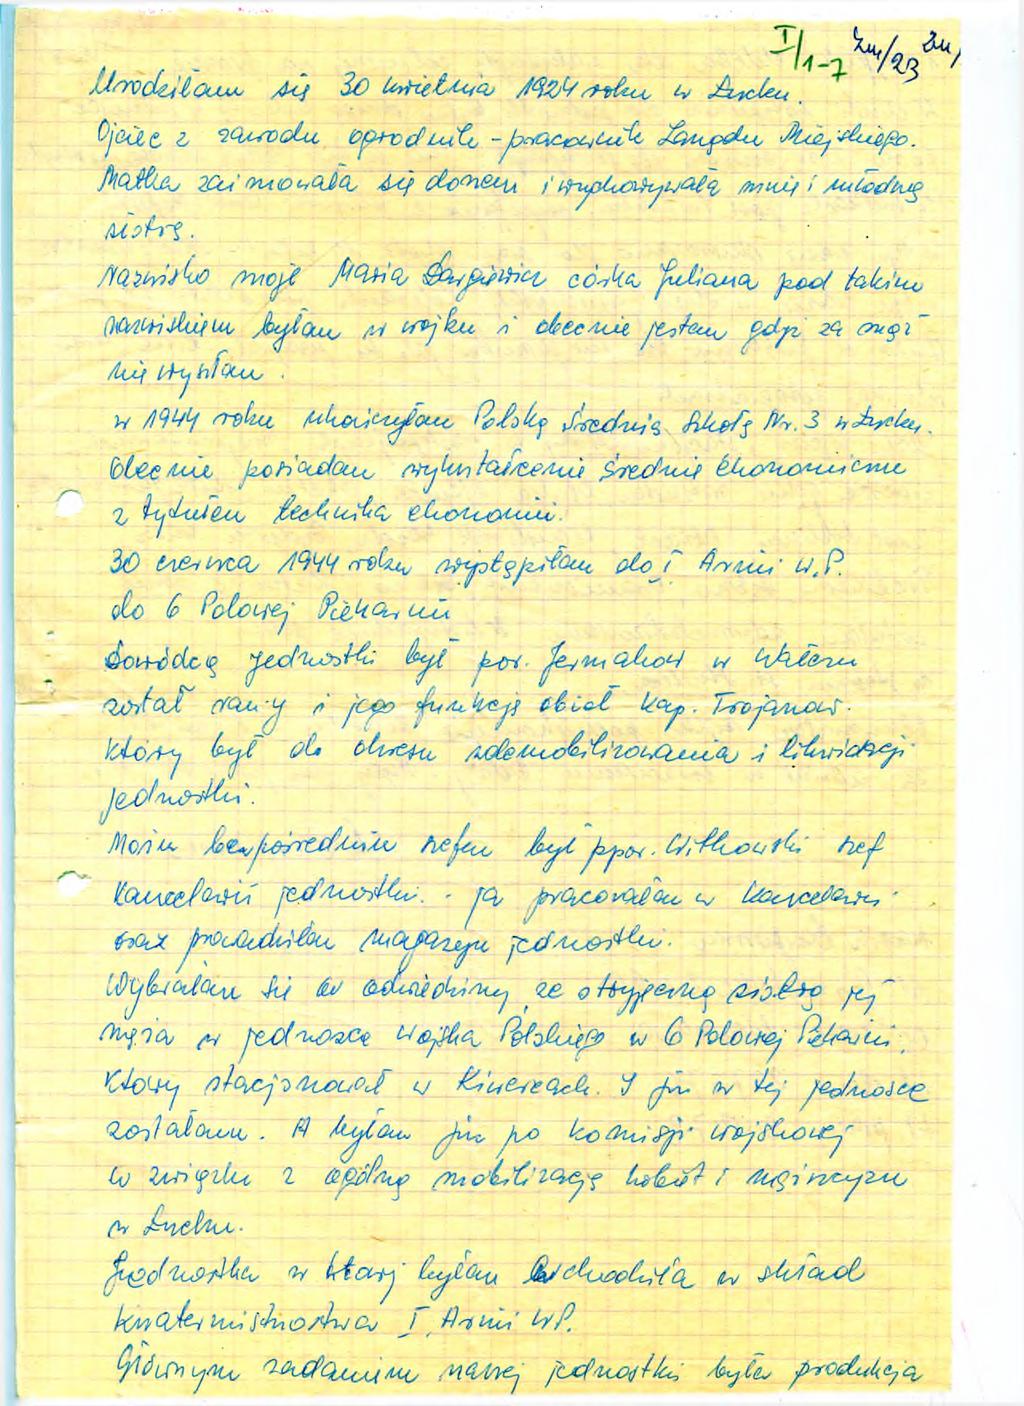 I/1-7 Zm/23
Urodziłam się 30 kwietnia 1924 roku w Łucku.
Ojciec z zawodu ogrodnik - pracownik Zarządu Miejskiego.
Matka zajmowała się domem i wychowywała mnie i młodszą
siostrę.
Nazwisko moje Maria córka Juliana pod takim
nazwiskiem byłam w wojsku i obecnie jestem gdyż za mąż
nie wyszłam.
w 1944 roku ukończyłam Polską Średnią Szkołę Nr. 3 w Łucku.
Obecnie posiadam wykształcenie średnie ekonomiczne
z tytułem technika ekonomii.
30 czerwca 1944 roku wystąpiłam do I Armii W.P.
do 6 Polowej Piekarni
Dowódcą jednostki był por. Jermakow w Wałczu
został ranny i jego funkcję objął kap. Trojanow.
który był do okresu zdemobilizowania i likwidacji
jednostki.
Moim bezpośrednim szefem był ppor. Witkowski szef
Kancelarii jednostki. - ja pracowałam w Kancelarii
oraz prowadziłam magazyn jednostki.
Wybrałam się w odwiedziny ze stryjeczną siostrą jej
męża w jednostce Wojska Polskiego w 6 Polowej Piekarni,
który stacjonował w Kiwercach. I już w tej jednostce
zostałam. A byłam już po komisji wojskowej
w związku z ogólną mobilizacją kobiet i mężczyzn
w Łucku.
Jednostka w której byłam wchodziła w skład
Kwatermistrzostwa I Armii WP.
Głównym zadaniem naszej jednostki była produkcja